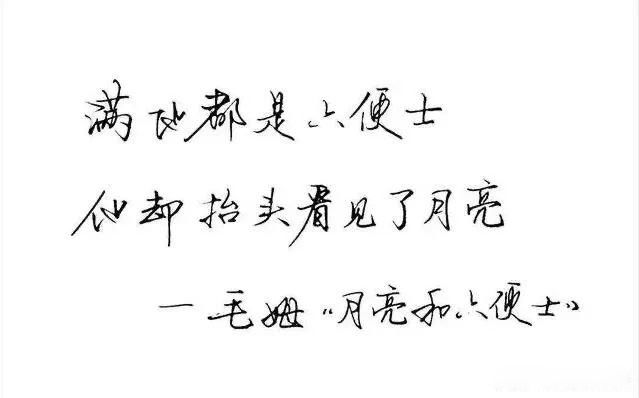 满地都是六便士
他却抬头看见了月亮
—毛姆“月亮和六便士”